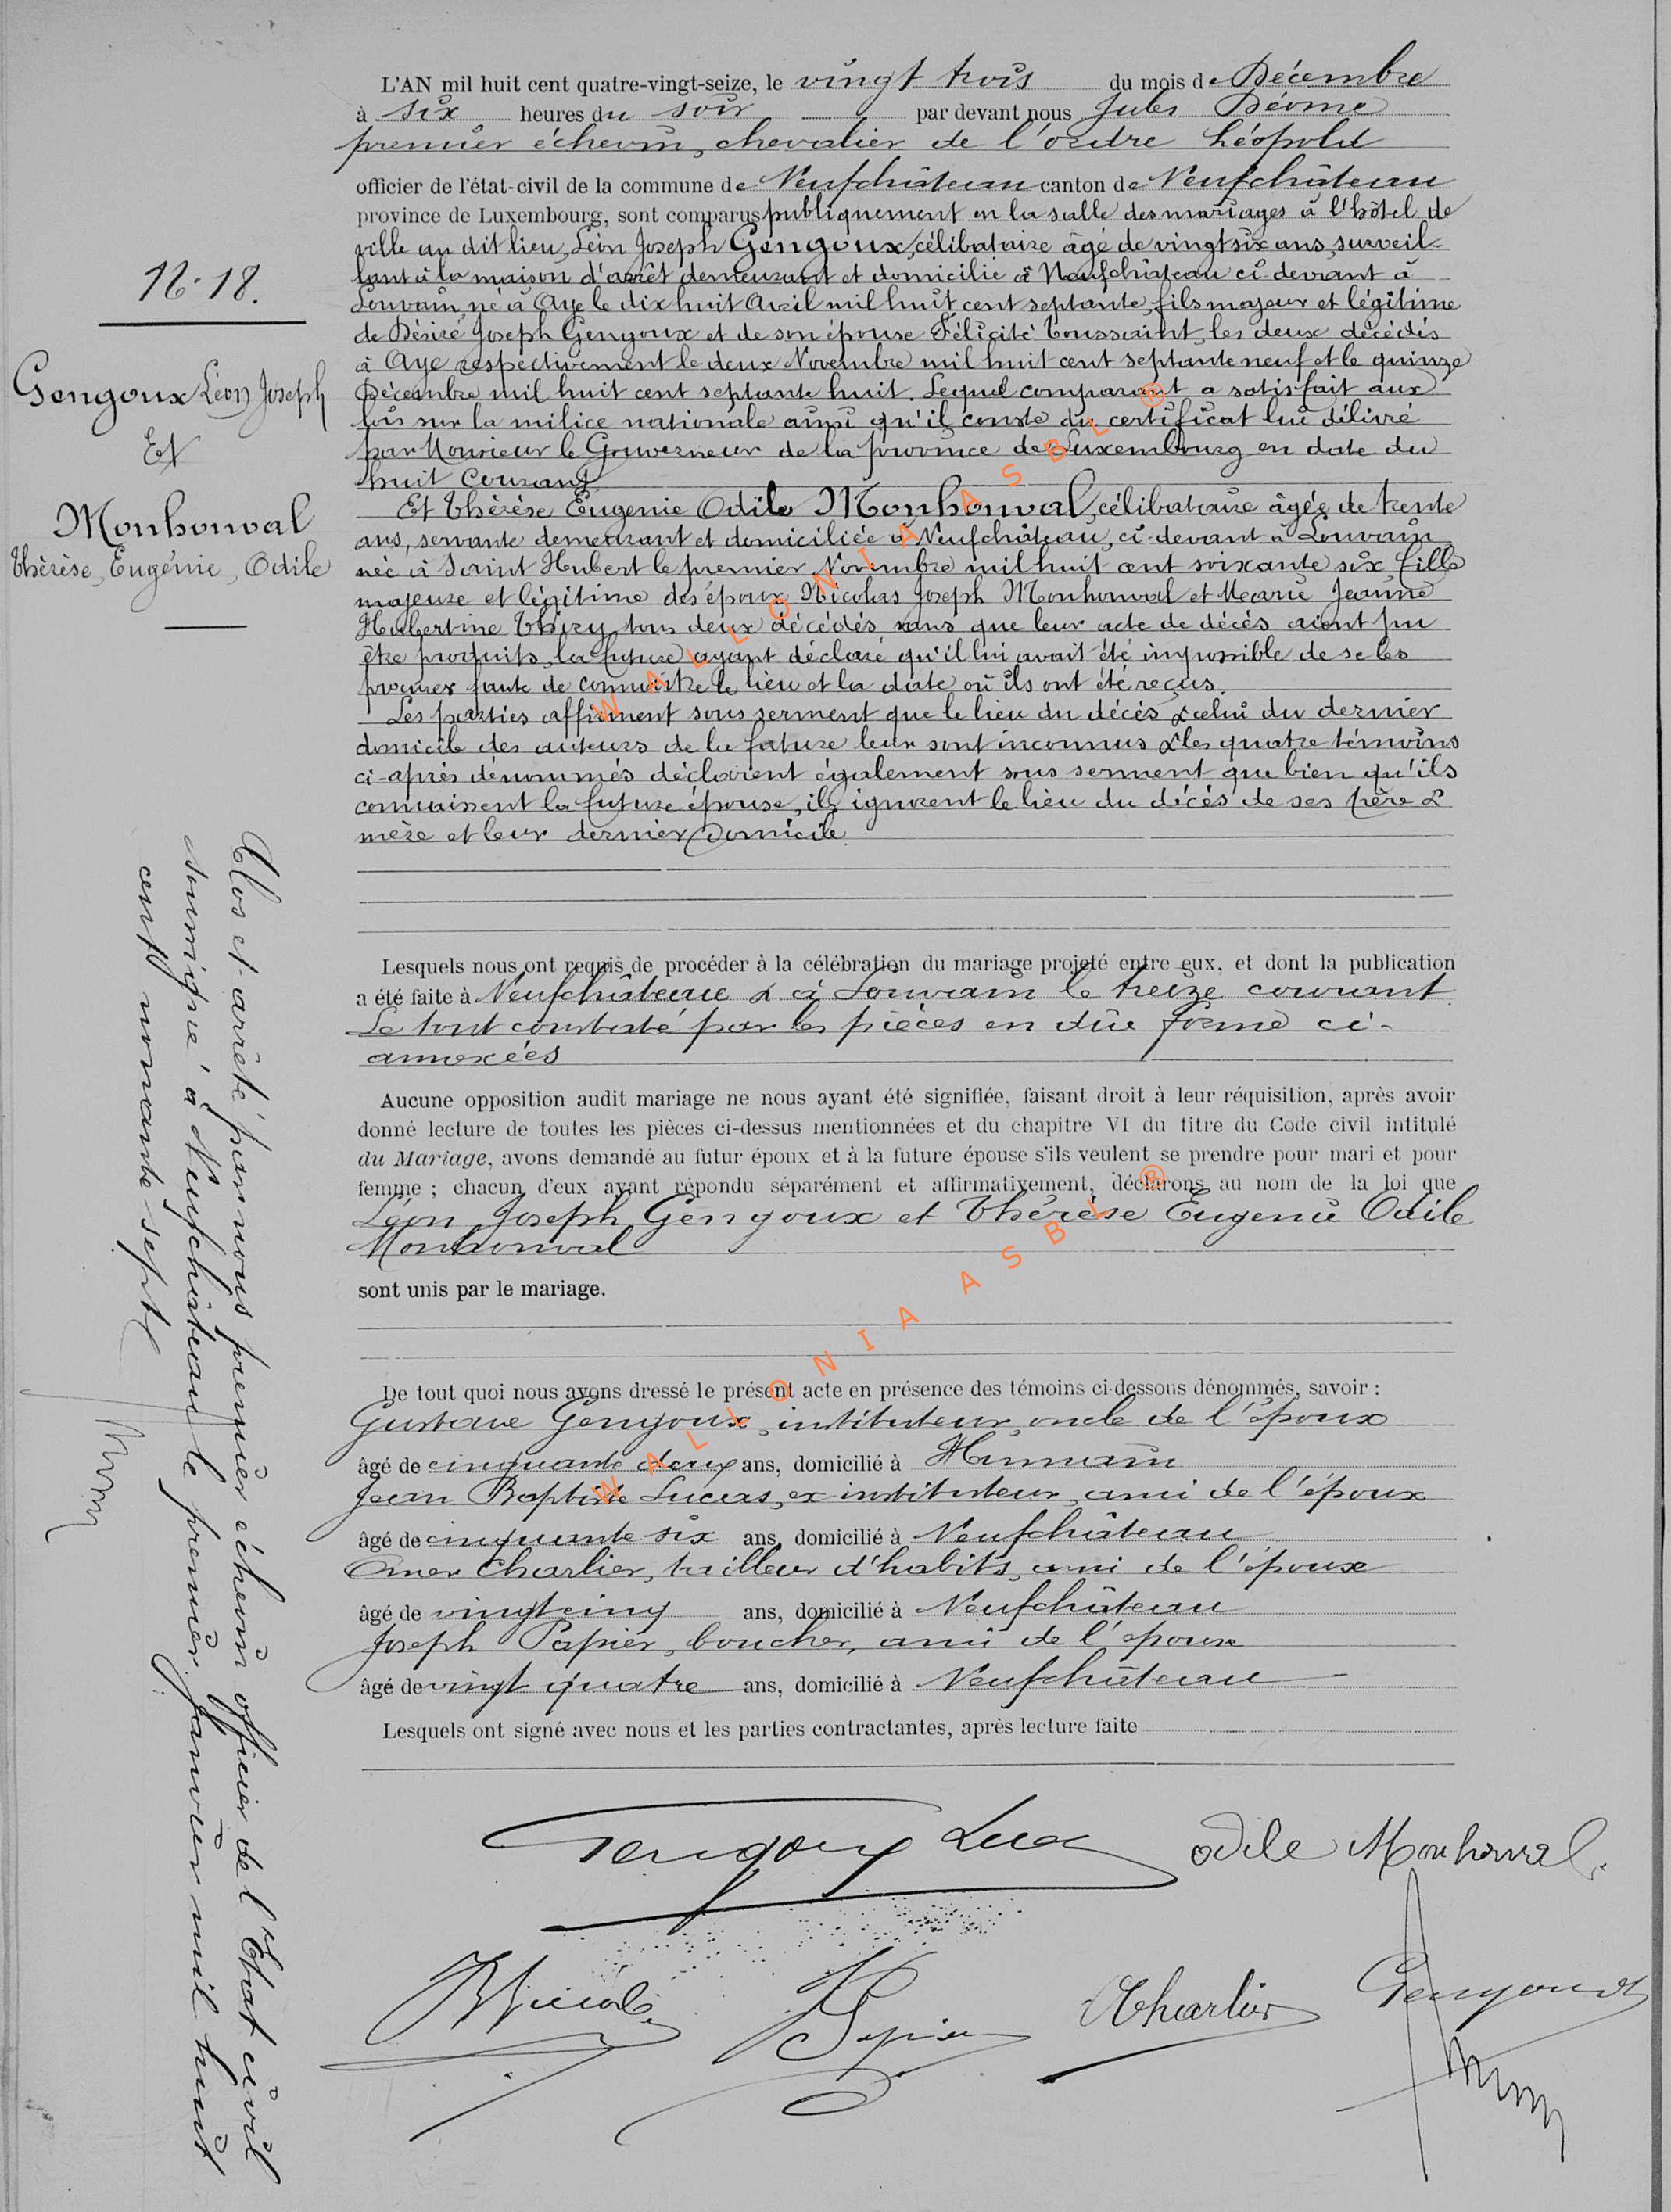 L'AN mil huit cent quatre-vingt-seize, le vingt trois du mois de Décembre
à six heures du soir par devant nous Jules Déome
premier échevin, chevalier de l'ordre Léopold
officier de l'état-civil de la commune de Neufchâteau canton de Neufchâteau
province de Luxembourg, sont comparus publiquement en la salle des mariages à l'hôtel de
ville au dit lieu, Léon Joseph Gengoux, célibataire âgé de vingt six ans, surveil-
lant à la maison d'arrêt demeurant et domicilié à Neufchâteau ci-devant à
Louvain, né à Aye le dix huit Avril mil huit cent septante, fils majeur et légitime
de Désiré Joseph Gengoux et de son épouse Félicité Toussaint, les deux décédés
à Aye respectivement le deux Novembre mil huit cent septante neuf et le quinze
Décembre mil huit cent septante huit. Lequel comparant a satisfait aux
lois sur la milice nationale ainsi qu'il conste du certificat lui délivré
par Monsieur le Gouverneur de la province de Luxembourg en date du
huit courant
Et Thérèse Eugenie Odile Monhonval, célibataire âgée de trente
ans, servante demeurant et domiciliée à Neufchâteau, ci-devant à Louvain
née à Saint Hubert le premier Novembre mil huit cent soixante six fille
majeure et légitime des époux Nicolas Joseph Monhonval et Marie Jeanne
Hubertine Thiry, tous deux décédés sans que leur acte de décès aient pu
être produits, la future ayant déclaré qu'il lui avait été impossible de se les
procurer faute de connaître le lieu et la date où ils ont été reçus.
Les parties affirment sous serment que le lieu du décès & celui du dernier
domicile des auteurs de la future leur sont inconnus & les quatre témoins
ci-après dénommés déclarent également sous serment que bien qu'ils
connaissent la future épouse, ils ignorent le lieu du décès de ses père &
mère et leur dernier domicile.
Lesquels nous ont requis de procéder à la célébration du mariage projeté entre eux, et dont la publication
a été faite à Neufchâteau & à Louvain le treize courant.
Le tout constaté par les pièces en dûe forme ci-
annexées
Aucune opposition audit mariage ne nous ayant été signifiée, faisant droit à leur réquisition, après avoir
donné lecture de toutes les pièces ci-dessus mentionnées et du chapitre VI du titre du Code civil intitulé
du Mariage, avons demandé au futur époux et à la future épouse s'ils veulent se prendre pour mari et pour
femme ; chacun d'eux ayant répondu séparément et affirmativement, déclarons au nom de la loi que
Léon Joseph Gengoux et Thérèse Eugenie Odile
Monhonval
sont unis par le mariage.
De tout quoi nous avons dressé le présent acte en présence des témoins ci-dessous dénommés, savoir :
Gustave Gengoux, instituteur, oncle de l'époux
âgé de cinquante deux ans, domicilié à
Jean Baptiste Lucas, ex instituteur, ami de l'époux
âgé de cinquante six ans, domicilié à Neufchâteau
Omer Charlier, tailleur d'habits, ami de l'époux
âgé de vingt cinq ans, domicilié à Neufchâteau
Joseph Papier, boucher, ami de l'époux
âgé de vingt quatre ans, domicilié à Neufchâteau
Lesquels ont signé avec nous et les parties contractantes, après lecture faite
Gengoux Odile Monhonval
Charlier Gengoux
N. 18.
Gengoux Léon Joseph
Et
Monhonval
Thérèse, Eugénie, Odile
Clos et arrêté par nous premier échevin officier de l'Etat civil
soussigné à Neufchâteau le premier janvier mil huit
cent nonante-sept
WALLONIA ASBL ®
WALLONIA ASBL ®